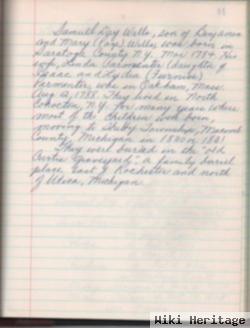 Samuel Day Wells, son of Benjamin
and Mary (Day) Wells was born in
Saratoga County N.Y. Mar 1784. His
wife, Linda Parmenter (daughter of
Isaac and Lydia
Parmenter, was in Oakham, Mass.
Aug 2, 1788. They lived in North
Cohocton, N.Y. for many years where
most of the children were born,
moving to Shelby Township, Macomb
County, Michigan in 1830 or 1831
They were buried in the "old
Curtis graveyard", a family burial
place East of Rochester and north
of Utica, Michigan.
Wiki Heritage